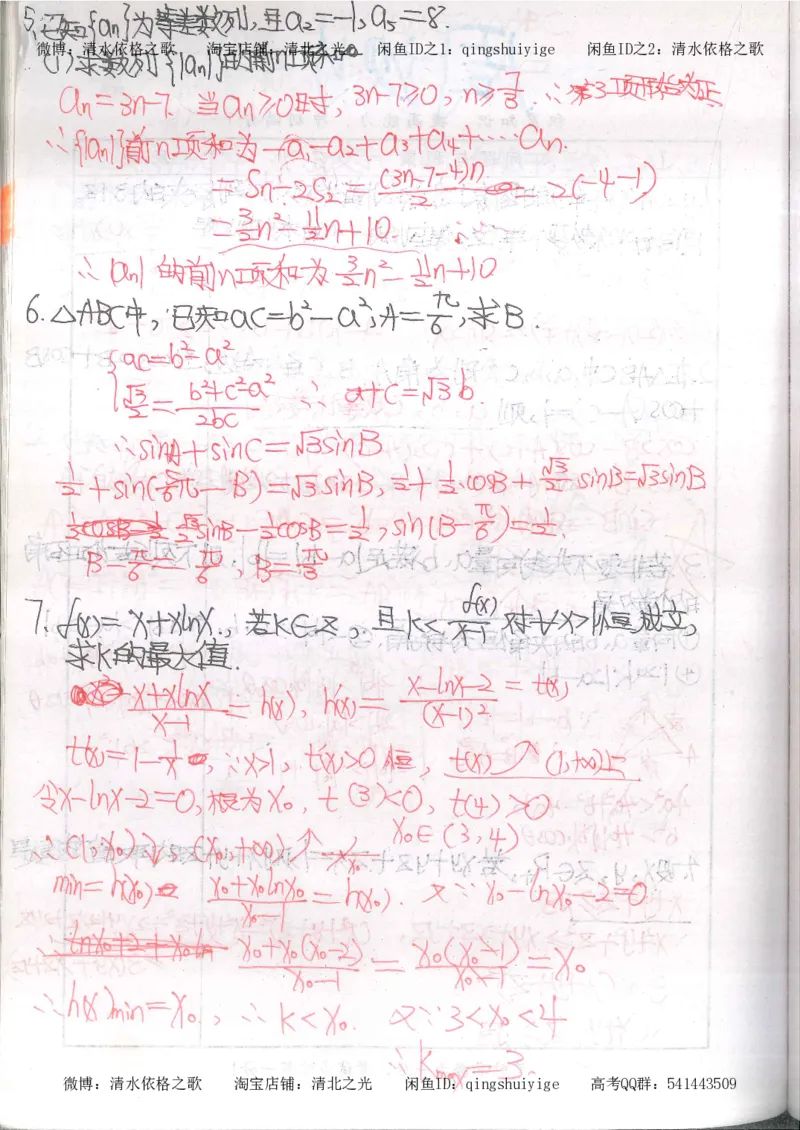 5.已知{an}为等差数列,且a₂=-1,a₅=8.
微博：清水依格之歌 淘宝店铺：清北之光 闲鱼ID之1：qingshuiyige 闲鱼ID之2：清水依格之歌
(1)求数列{|an|}的前n项和
an=3n-7. 当an≥0时, 3n-7≥0, n≥7/3 ∴第3项开始为正
∴{|an|}前n项和为-a₁-a₂+a₃+a₄+……an.
=Sn-2S₂=(3n-7-4)n/2 - 2(-4-1)
=3/2n²-11/2n+10.
∴|an|的前n项和为3/2n²-11/2n+10
6.△ABC中,已知ac=b²-a²,A=π/6,求B.
{ac=b²-a²
√3/2=b²+c²-a²/2bc ∴a+c=√3b
∴sinA+sinC=√3sinB
1/2+sin(5/6π-B)=√3sinB, 1/2+1/2cosB+√3/2sinB=√3sinB
√3/2sinB-1/2cosB=1/2, sin(B-π/6)=1/2.
B-π/6=π/6, B=π/3
7.f(x)=x+xlnx,若k∈Z,且k<f(x)/x-1对∀x>1恒成立,
求k的最大值.
x+xlnx/x-1=h(x), h(x)=x-lnx-2/(x-1)²=t(x)
t(x)=1-1/x, ∵x>1, t(x)>0恒, t(x)↗(1,+∞)上
令x-lnx-2=0,根为x₀, t(3)<0, t(4)>0
∴(1,x₀)↓,(x₀,+∞)↑, x₀∈(3,4)
min=h(x₀)=x₀+x₀lnx₀/x₀-1=h(x₀). 又∵x₀-lnx₀-2=0
x₀+x₀(x₀-2)/x₀-1=x₀(x₀-1)/x₀-1=x₀
∴h(x)min=x₀, ∴k<x₀. 又∵3<x₀<4
∴kmax=3.
微博：清水依格之歌 淘宝店铺：清北之光 闲鱼ID：qingshuiyige 高考QQ群：541443509